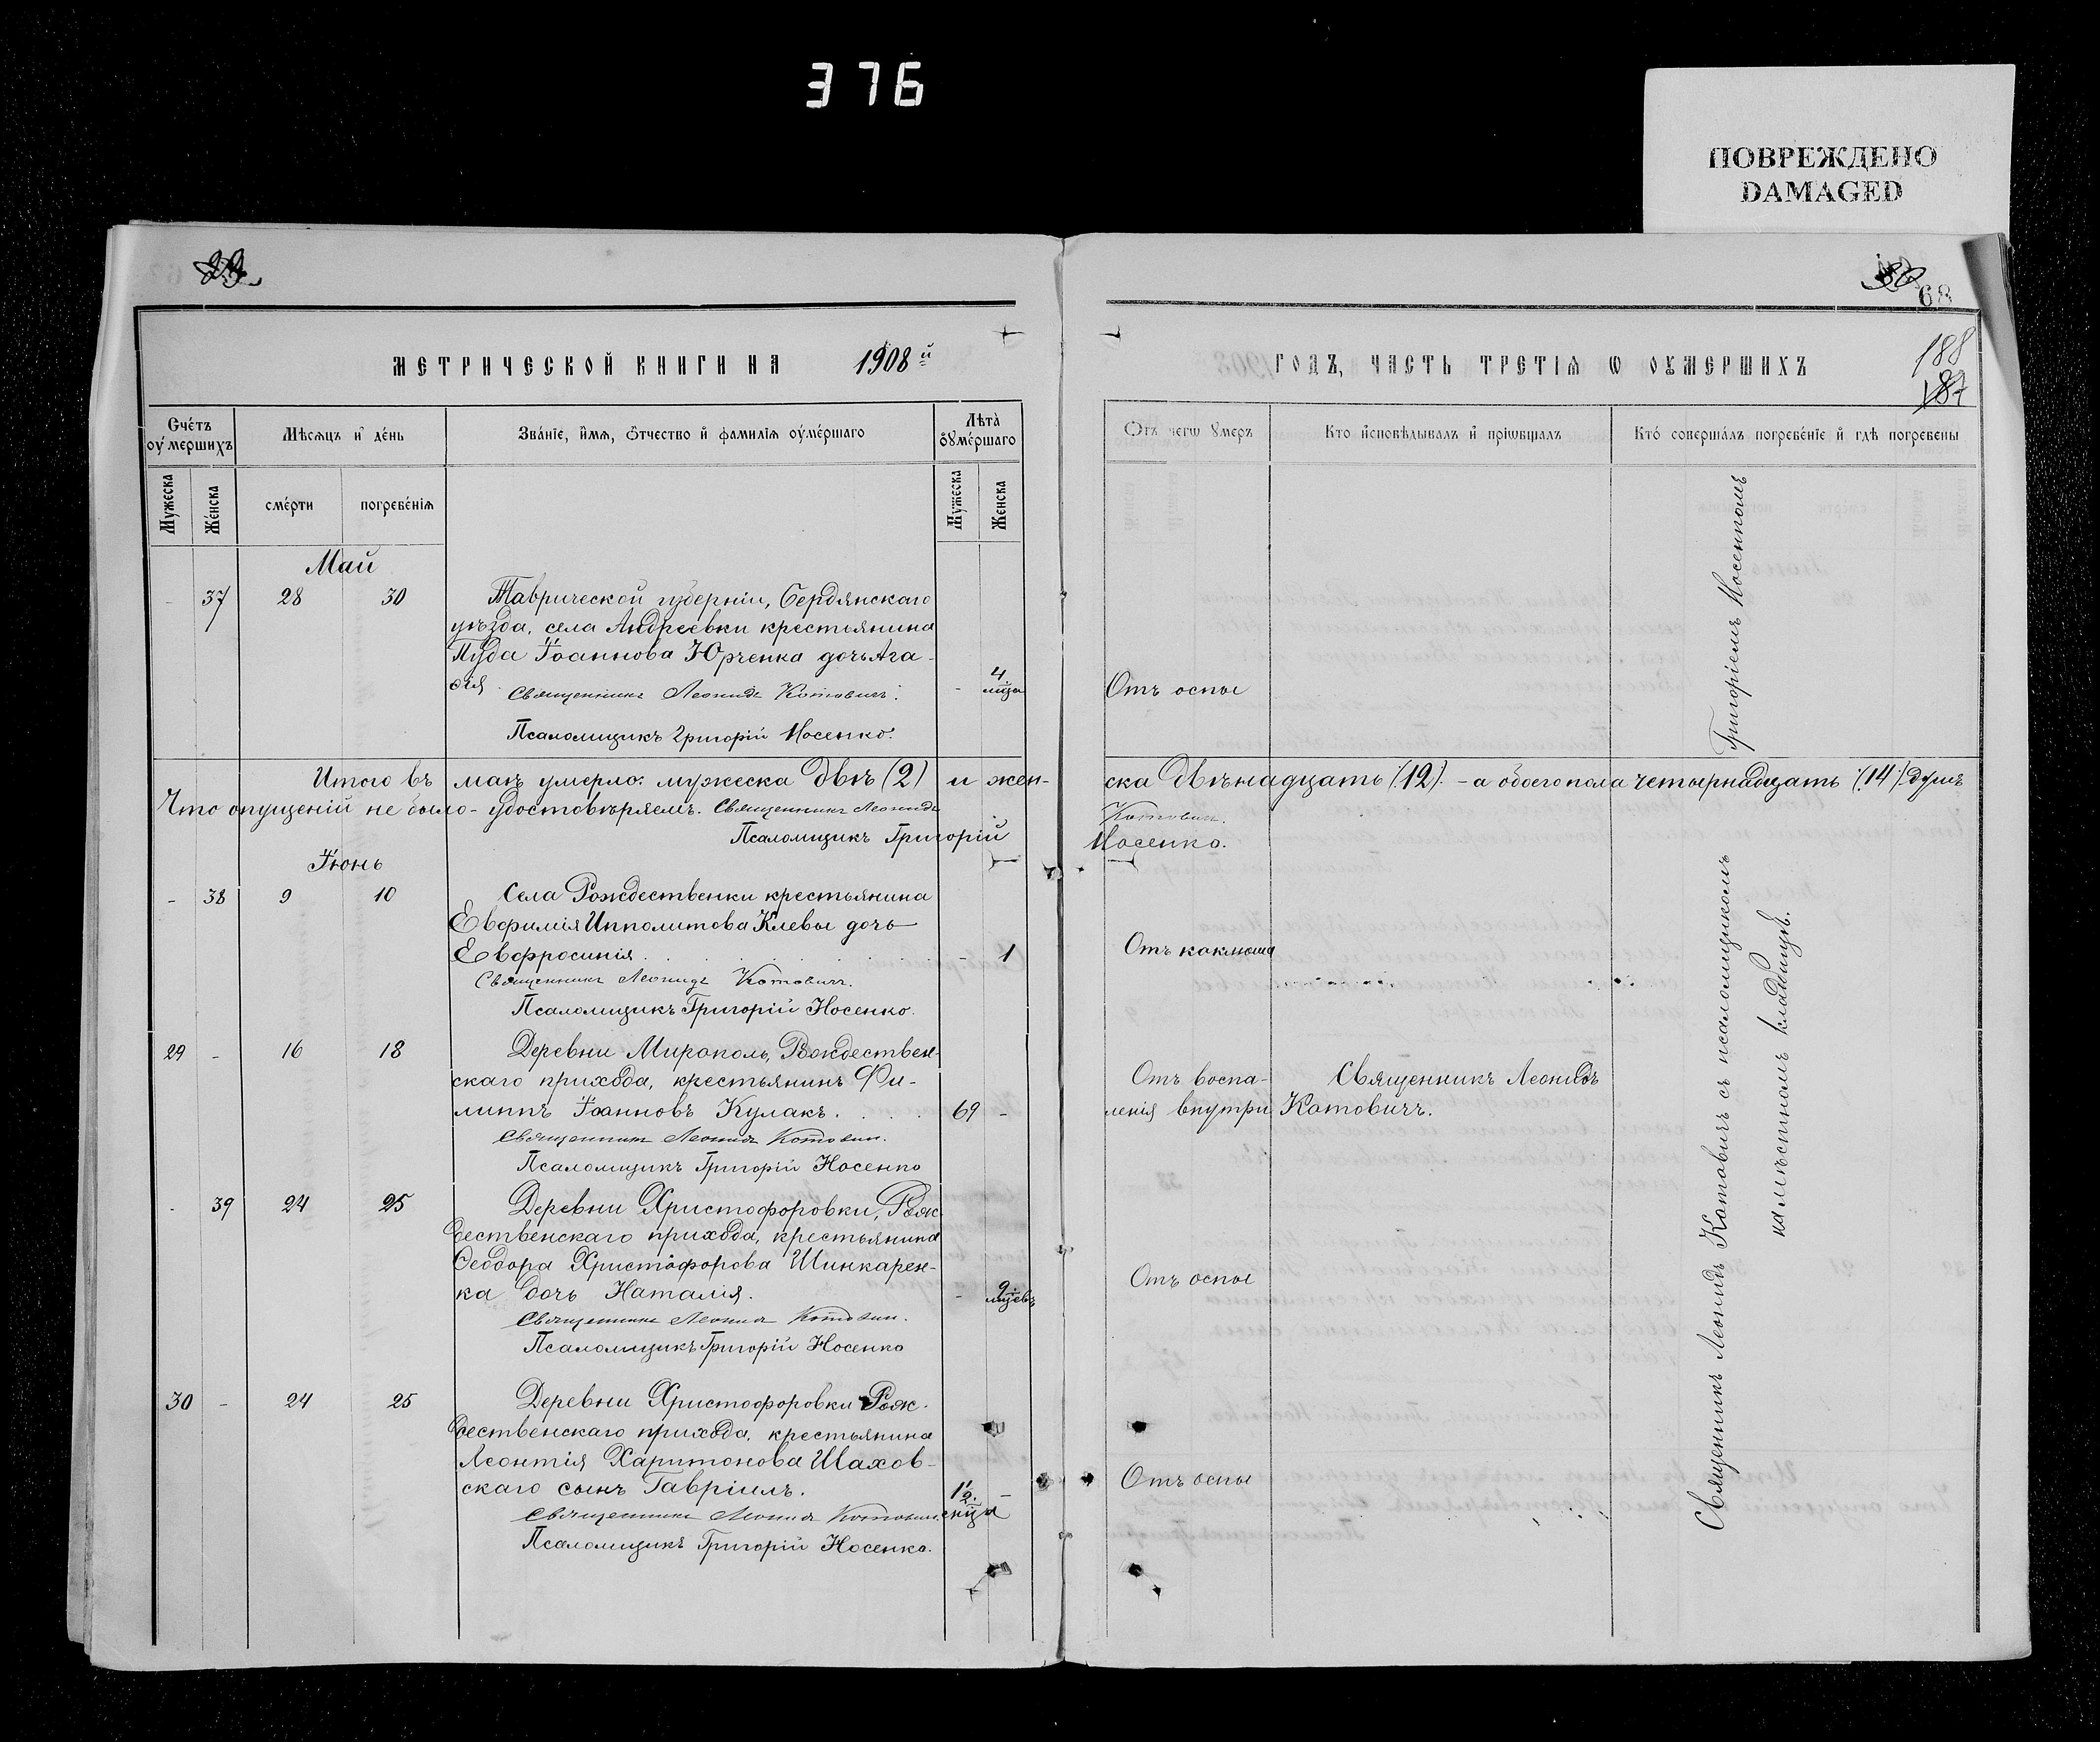 376
ПОВРЕЖДЕНО
DAMAGED
68
188
187
МЕТРИЧЕСКОЙ КНИГИ НА 1908й
ГОДЪ, ЧАСТЬ ТРЕТІЯ Ѡ ОУМЕРШИХЪ
Счетъ оумершихъ
Мѣсяцъ и день
Званіе, имя, отчество и фамилія оумершаго
Лѣта оумершаго
Отъ чегѡ умеръ
Кто исповѣдывалъ и пріобщалъ
Кто совершалъ погребеніе и гдѣ погребены
Мужеска
Женска
смерти
погребенія
Мужеска
Женска
Май
- 37 28 30 Таврической губерніи, Бердянскаго
уѣзда, села Андреевки крестьянина
Пуда Іоаннова Юрченка дочь Ага-
ѳія. - 4 мца Отъ оспы
Священникъ Леонидъ Котовичъ.
Псаломщикъ Григорій Носенко.
Итого въ маѣ умерло: мужеска двѣ (2) и жен-
ска двѣнадцать (12). - а обоего пола четырнадцать (14) душъ
Что опущеній не было - удостовѣряемъ. Священникъ Леонидъ
Котовичъ.
Псаломщикъ Григорій
Носенко.
Іюнь
- 38 9 10 Села Рождественки крестьянина
Евфимія Ипполитова Клевы дочь
Евфросинія - 1 Отъ коклюша
Священникъ Леонидъ Котовичъ.
Псаломщикъ Григорій Носенко.
29 - 16 18 Деревни Мирополь, Рождествен-
скаго прихода, крестьянинъ Фи-
липпъ Іоанновъ Кулакъ. 69 -
Отъ воспа-
ленія внутри
Священникъ Леонидъ
Котовичъ.
Священникъ Леонидъ Котовичъ.
Псаломщикъ Григорій Носенко
- 39 24 25 Деревни Христофоровки, Рож-
дественскаго прихода, крестьянина
Ѳеодора Христофорова Шинкарен-
ка дочь Наталія. - 9 мцевъ Отъ оспы
Священникъ Леонидъ Котовичъ.
Псаломщикъ Григорій Носенко
30 - 24 25 Деревни Христофоровки Рож-
дественскаго прихода, крестьянина
Леонтія Харитонова Шахов-
скаго сынъ Гавріилъ. 1½ - Отъ оспы
Священникъ Леонидъ Котовичъ.
Псаломщикъ Григорій Носенко.
Священникъ Леонидъ Котовичъ съ псаломщикомъ Григоріемъ Носенкомъ
на мѣстномъ кладбищѣ.